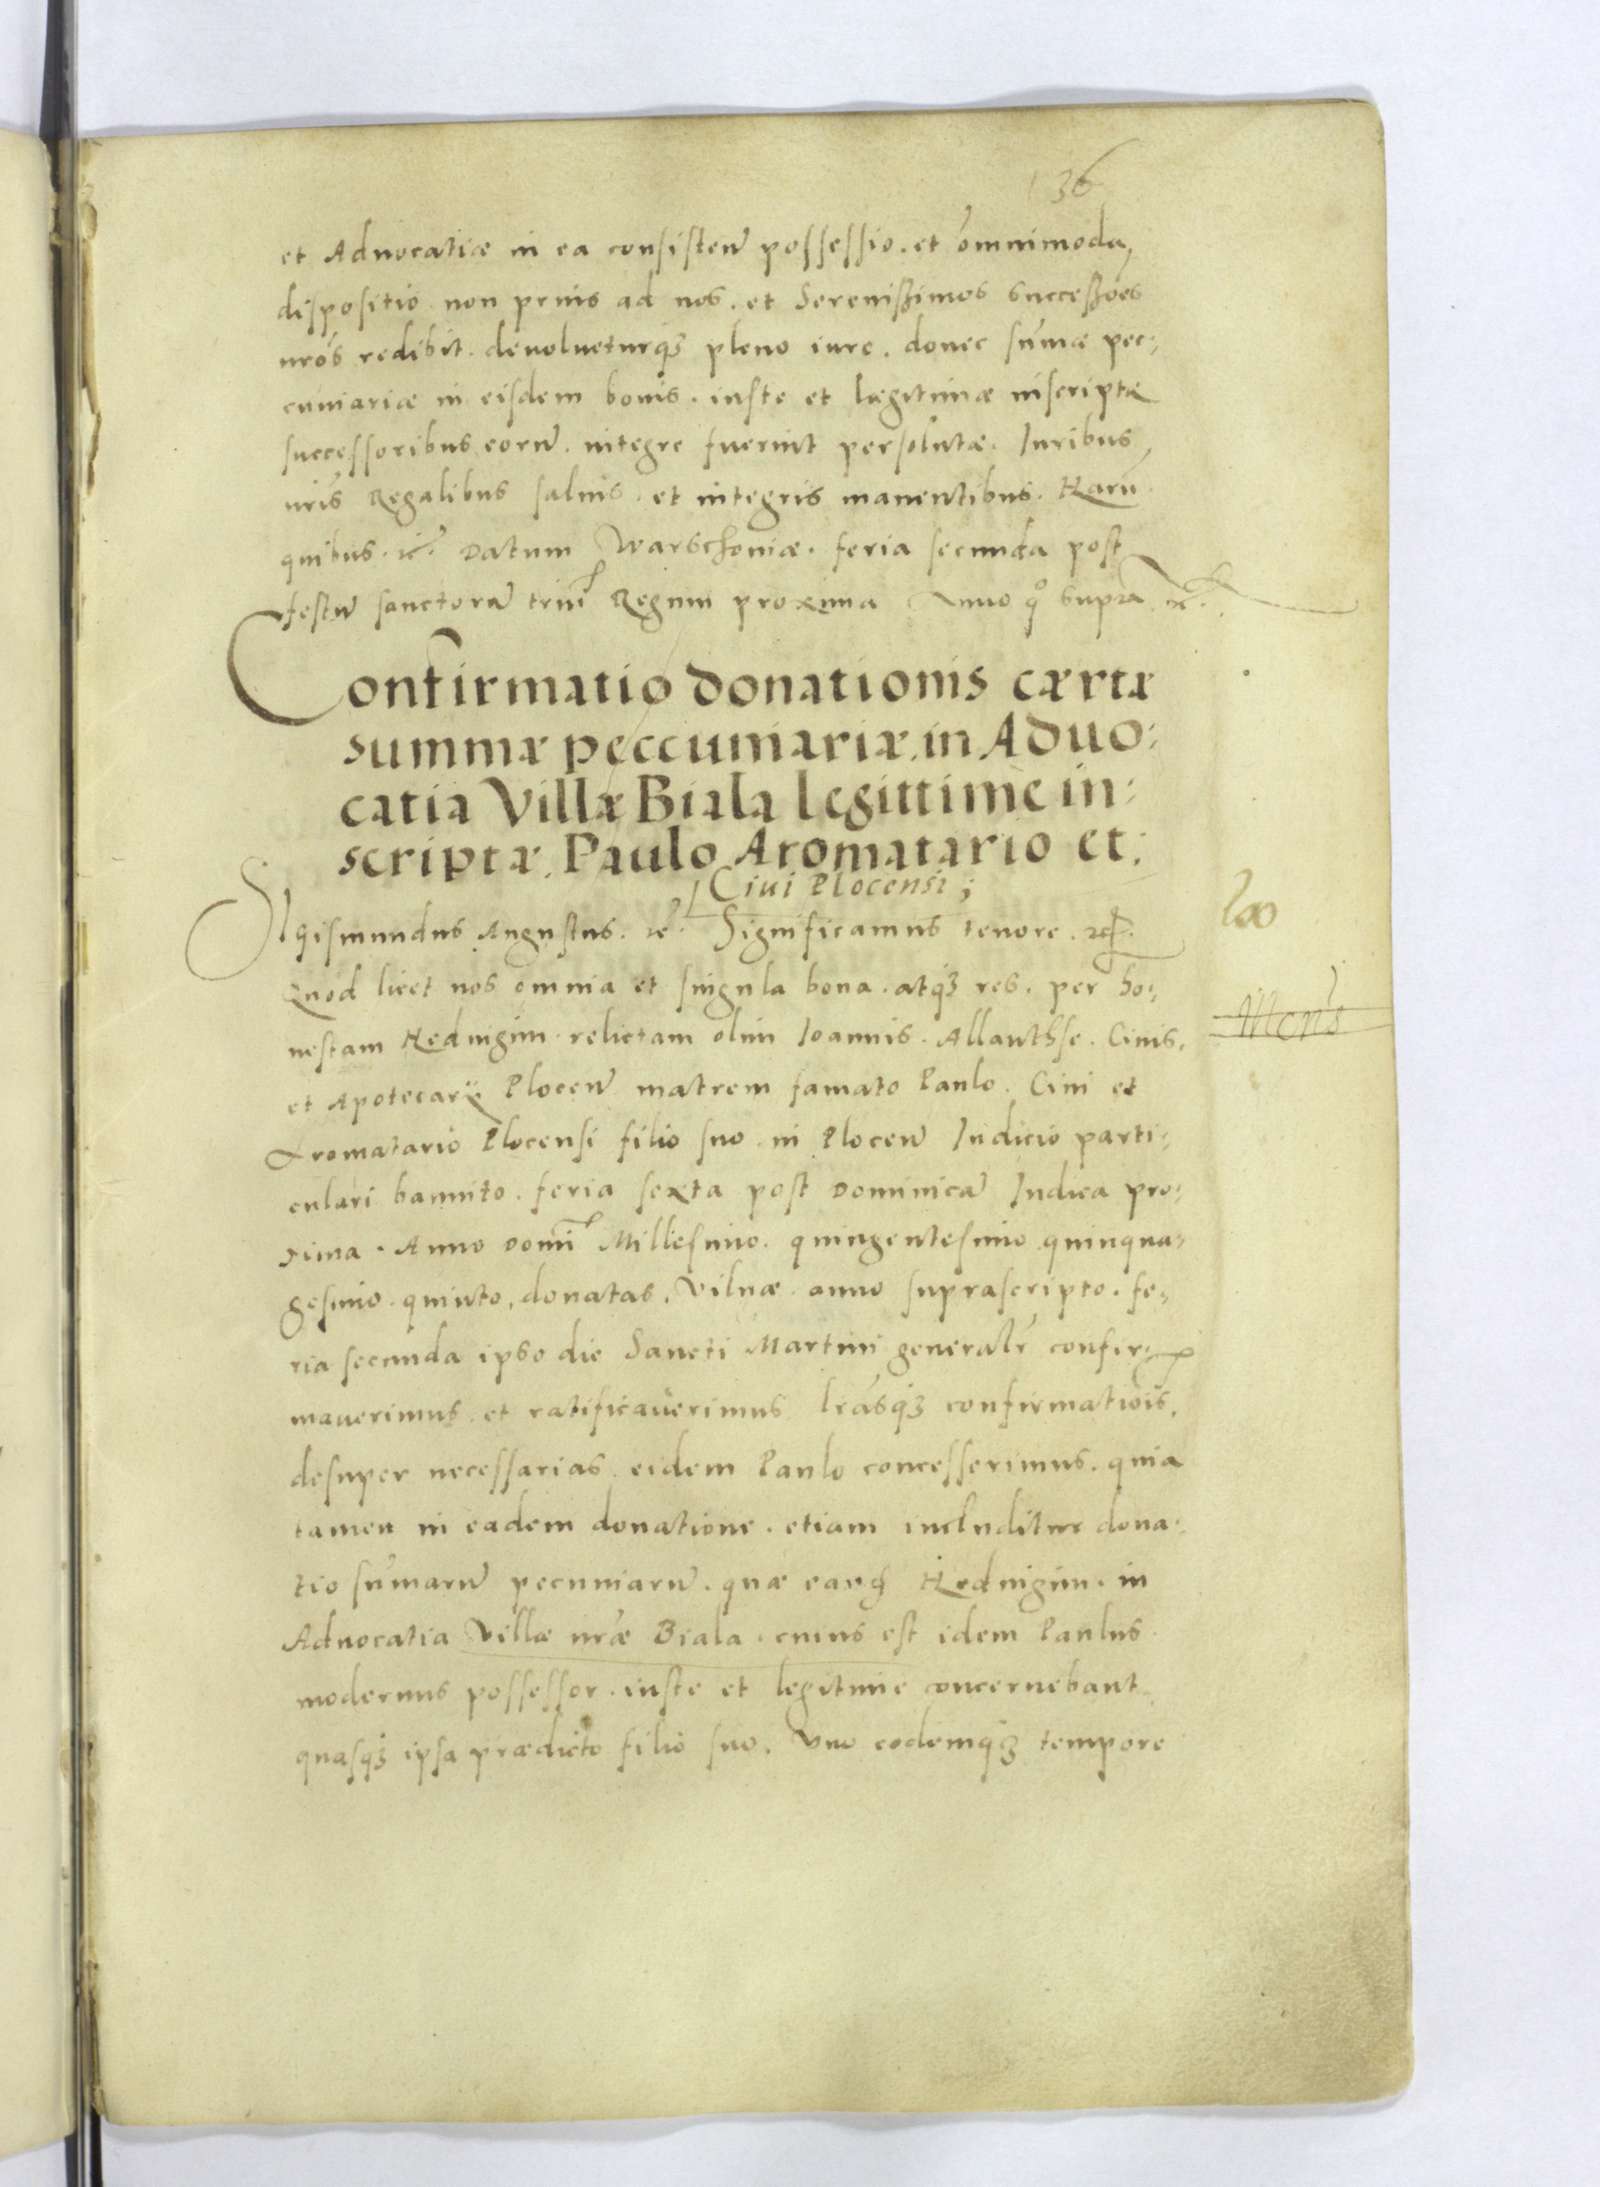 136
et Aduocatiæ in ea consisteñ possessio. et omnimoda,
dispositio non prius ad nos. et Serenißimos succeßões
nrõs redibit. deuolueturqȝ pleno iure. donec sum̃æ pec:
cuniariæ in eisdem bonis. iuste et lægitimæ inscriptæ
successoribus eorũ. integre fuerint persolutæ. Iuribus,
nrĩs Regalibus saluis. et integris manentibus. Harũ
quibus. &c. Datum Warschouiæ. feria secunda post
festũ sanctorũ triũ Regum proxima Anno qº supra &c.
Confirmatio donationis cærtæ
summæ peccuniariæ in Aduo:
catia Villæ Biala legittime in:
scriptæ. Paulo Aromatario et:
Ciui Plocensi;
Sigismundus Augustus. &c. Significamus tenore. &c.
Quod licet nos omnia et singula bona. atqȝ res. per ho:
nestam Heduigim relictam olim Ioannis. Allanthse. Ciuis.
et Apotecarij Ploceñ matrem famato Paulo. Ciui et
Aromatario Plocensi filio suo. in Ploceñ Iudicio parti:
culari bannito. feria sexta post Dominicã Iudica pro:
xima. Anno Domĩ Millesimo. quingentesimo quinqua:
gesimo. quinto, donatas. Vilnæ. anno suprascripto. fe:
ria secunda ipso die Sancti Martini generalr̃ confir:
mauerimus. et ratificauerimus lrãsqȝ confirmatiõis.
desuper necessarias eidem Paulo concesserimus. quia
tamen in eadem donatione. etiam includitur dona:
tio sum̃arũ pecuniarũ. quæ eand̃ Heduigim. in
Aduocatia Villæ nrãe Biala. cuius est idem Paulus
modernus possessor. iuste et legitime concernebant.
quasqȝ ipsa prædicto filio suo. Vno eodemqȝ tempore